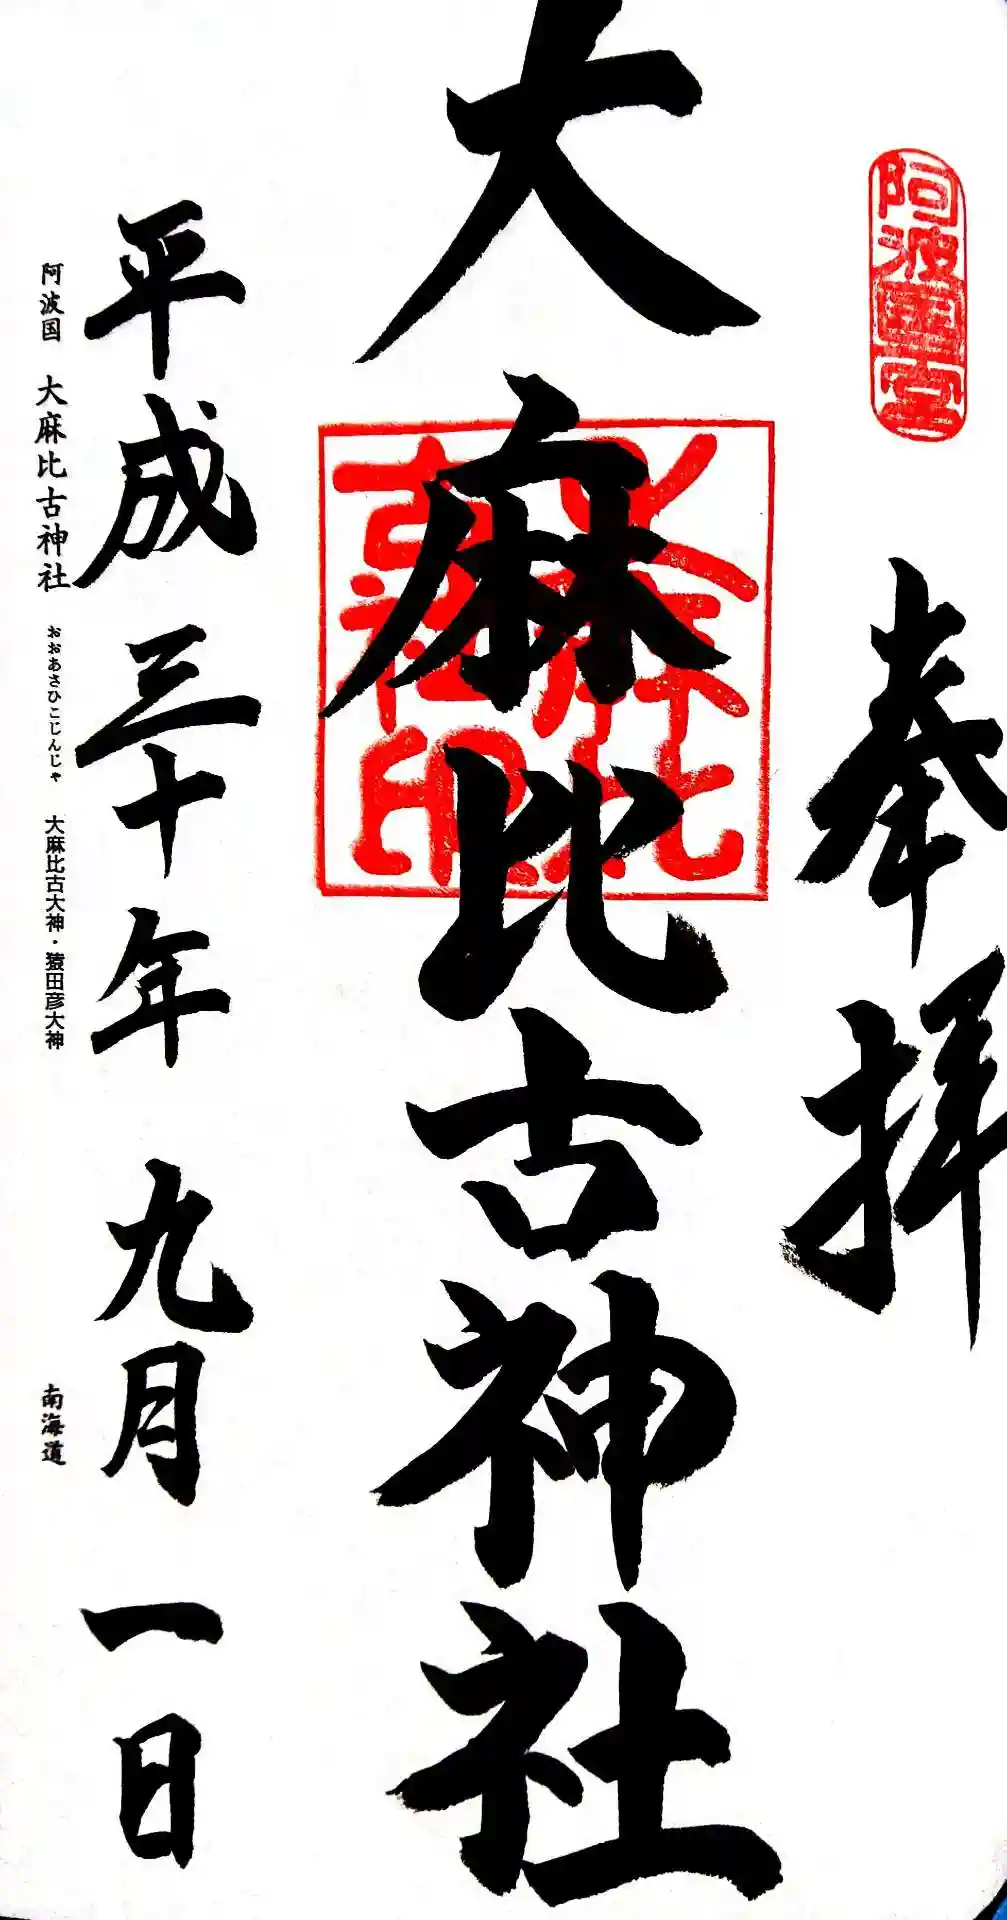 阿波国一宮
奉拝
大麻比古神社
大麻比古神社印
平成三十年 九月 一日
阿波国 大麻比古神社 おおあさひこじんじゃ 大麻比古大神・猿田彦大神 南海道